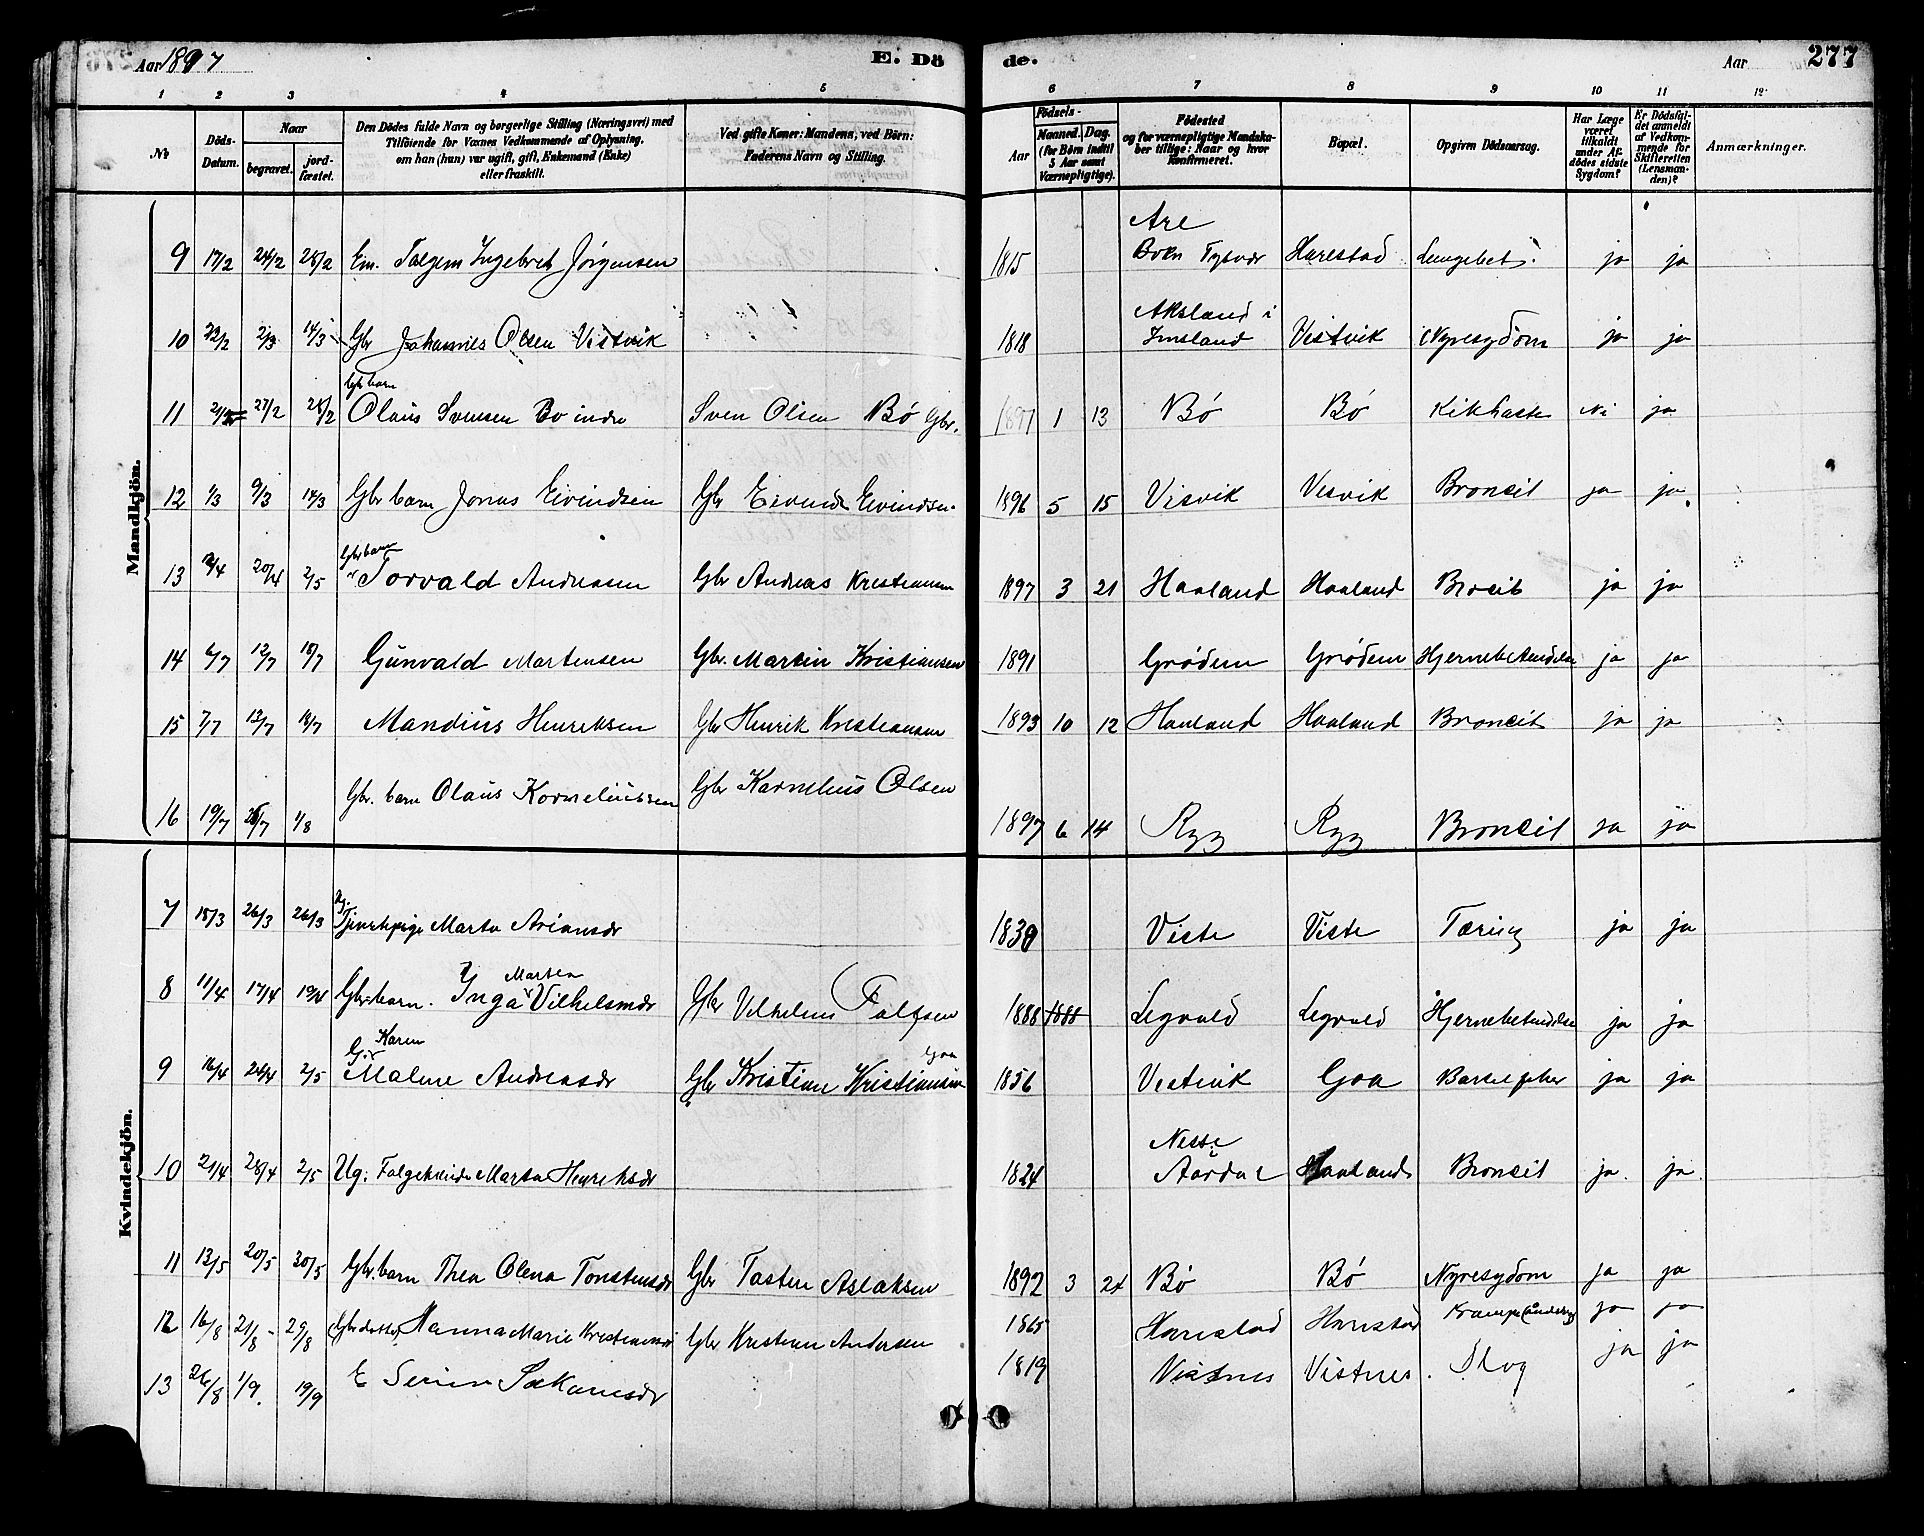 Aar 1897 E. Dö de. Aar 277
1 2 3 4 5 6 7 8 9 10 11 12
№
Döds-Datum.
Naar begravet. jordfæstet.
Den Dödes fulde Navn og borgerlige Stilling (Næringsvei) med Tilföiende for Voxnes Vedkommende af Oplysning, om han (hun) var ugift, gift, Enkemand (Enke) eller fraskilt.
Ved gifte Koner: Mandens, ved Börn: Faderens Navn og Stilling.
Födsels- Aar Maaned. Dag. (for Börn indtil 5 Aar samt Værnepligtige).
Födested og for værnepligtige Mandskaber tillige: Naar og hvor Konfirmeret.
Bopæl.
Opgiven Dödsaarsag.
Har Læge været tilkaldt under Afdödes sidste Sygdom?
Er Dödsfaldet anmeldt af Vedkommende for Skifteretten (Lensmanden)?
Anmærkninger.
Mandkjön.
9 17/2 24/2 28/2 Em. Ingebret Jörgensen 1815 Are Bokn Tysvær Harestad ja ja
10 22/2 2/3 14/3 Gbr Johannes Olsen Vistvik 1818 Aksland i Imsland Vistvik Nyresygdom ja ja
11 27/2 28/2 Gbr barn Olaus Svensen Bö indre Sven Olsen Bö Gbr. 1897 1 13 Bö Bö Kikhoste Nei ja
12 1/3 9/3 14/3 Gbr barn Jonas Eivindsen Gbr Eivind Eivindsen 1896 5 15 Visvik Visvik Broncit ja ja
13 20/4 2/5 Gbr barn Torvald Andreasen Gbr Andreas Kristiansen 1897 3 21 Haaland Haaland Brocit ja ja
14 6/7 12/7 18/7 Gunvald Martensen Gbr. Martin Kristiansen 1891 Grödem Grödem Hjernebetændelse ja ja
15 7/7 13/7 18/7 Mandius Henriksen Gbr Henrik Kristiansen 1893 10 12 Haaland Haaland Broncit ja ja
16 19/7 1/8 Gbr. barn Olaus Korneliussen Gbr Kornelius Olsen 1897 6 14 Ryg Ryg Broncit ja ja
Kvindekjön.
7 18/3 26/3 26/3 Ug. Tjenestepige Marta Ariansdr 1830 Viste Viste Tæring ja ja
8 11/4 17/4 19/4 Gbr barn. Inga Martea Vilhelmsdr Gbr Vilhelm 1888 1888 Legvold Legvold Hjernebetændelse ja ja
9 16/4 24/4 2/5 G. Karen Malene Andreasdr Gbr Kristian Kristiansen Goa 1856 Vestvik Goa Barselfeber ja ja
10 21/4 28/4 2/5 Ug. Marta Henriksdr 1824 Nesse i Aardal Haaland Broncit ja ja
11 13/5 20/5 30/5 Gbr. barn Thea Olena Torstensdr Gbr Tosten Aslaksen 1892 3 24 Bö Bö Nyresygdom ja ja
12 16/8 21/8 29/8 Gbr datter Hanna Marie Kristiansdr Gbr Kristian Andersen 1865 Harestad Harestad Krampe ja ja
13 26/8 1/9. 19/9 E Serina Sakariasdr 1819 Vistnes Vistnes. Slag ja ja